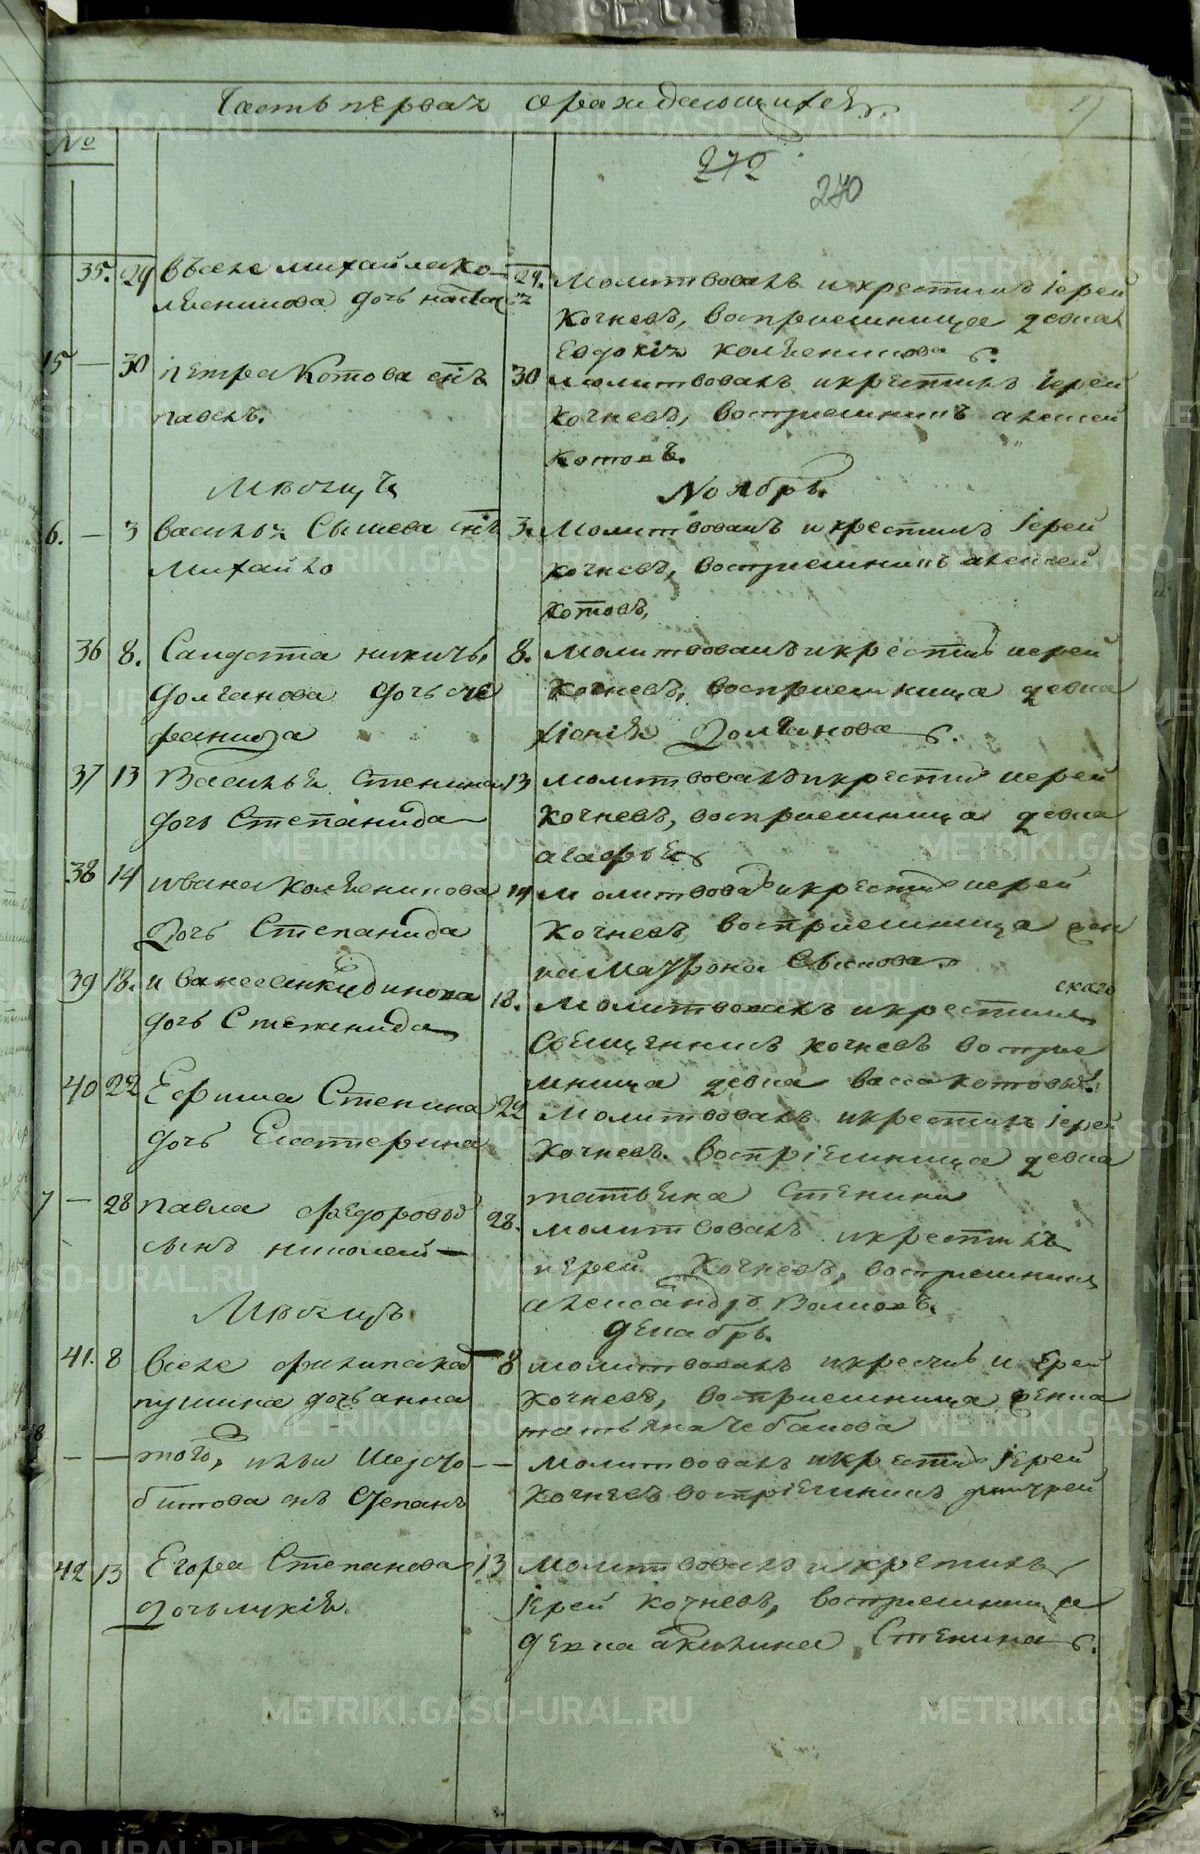 Часть первая о раждающихся.
272
270
№
35. 29 Въ селе михайла ко-
лѣсникова дочь настас
29. молитвовалъ и крестилъ іерей
Кочневъ, воспріемница девка
Евдокія колѣсникова
15 — 30 Петра Котова сынъ
павелъ.
30 молитвовалъ и крестилъ іерей
кочневъ, воспріемникъ алексей
котовъ.
Мѣсяцъ Ноябрь.
6. — 3 василья Сысоева сынъ
михайло
3. Молитвовалъ и крестилъ іерей
кочневъ, воспріемникъ алексей
котовъ,
36 8. Салдата никиты
долганова дочь сте
фанида
8. молитвовалъ и крестилъ иерей
Кочневъ, воспріемница девка
Долганова
37 13 Василья Стенина
дочь Степанида
13 молитвовалъ и крестилъ иерей
Кочневъ, воспріемница девка
агафья
38 14 ивана колѣсникова
Дочь Степанида
14 молитвовалъ и крестилъ иерей
Кочневъ воспріемница дев
ка Матрона
39 18. ивана анкудинова
дочь Степанида
18. молитвовалъ и крестилъ
Священникъ кочневъ воспріе
мница девка васса котова
40 22 Ефима Стенина
дочь Екатерина
22 молитвовалъ и крестилъ іерей
Кочневъ. воспріемница девка
татьяна Стенина
7 — 28 павла федорова
сынъ николай —
28. молитвовалъ и крестилъ
иерей Кочневъ, воспріемникъ
александръ Волковъ.
Мѣсяцъ декабрь.
41. 8 Въ селе филипа ка
пушина дочь анна
8 молитвовалъ и крестилъ иерей
Кочневъ, воспріемница девка
татьяна чебакова
— — того,
битова сынъ Степанъ
— молитвовалъ и крестилъ іерей
Кочневъ воспріемникъ дмитрей
42 13 Егора Степанова
Дочь лукія.
13 молитвовалъ и крестилъ
іерей кочневъ, воспріемница
девка акилина Стенина